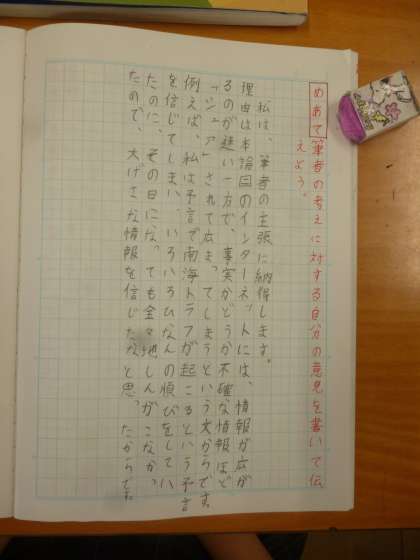 めあて筆者の考えに対する自分の意見を書いて伝
えよう。
私は、筆者の主張に納得します。
理由は本論⑤のインターネットには、情報が広が
るのが速い一方で、事実かどうか不確な情報ほど
「シェア」されて広まってしまうという文からです。
例えば、私は予言で南海トラフが起こるという予言
を信じてしまい、いろいろひなんの順びをしてい
たのに、その日になっても全々地しんがこなか
たので、大げさな情報を信じたなと思ったからです。